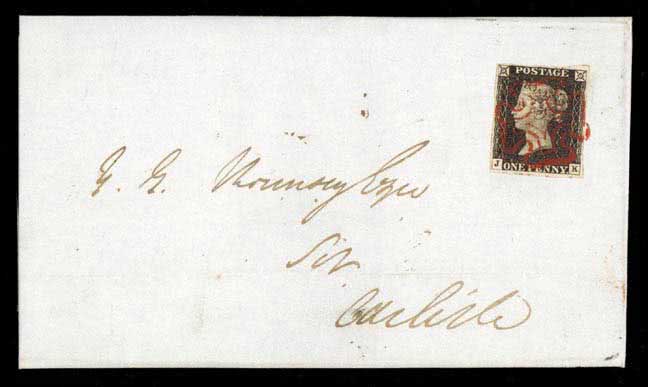 POSTAGE
J K
ONE PENNY
G. G. Mounsey Esqre
Sir
Carlisle